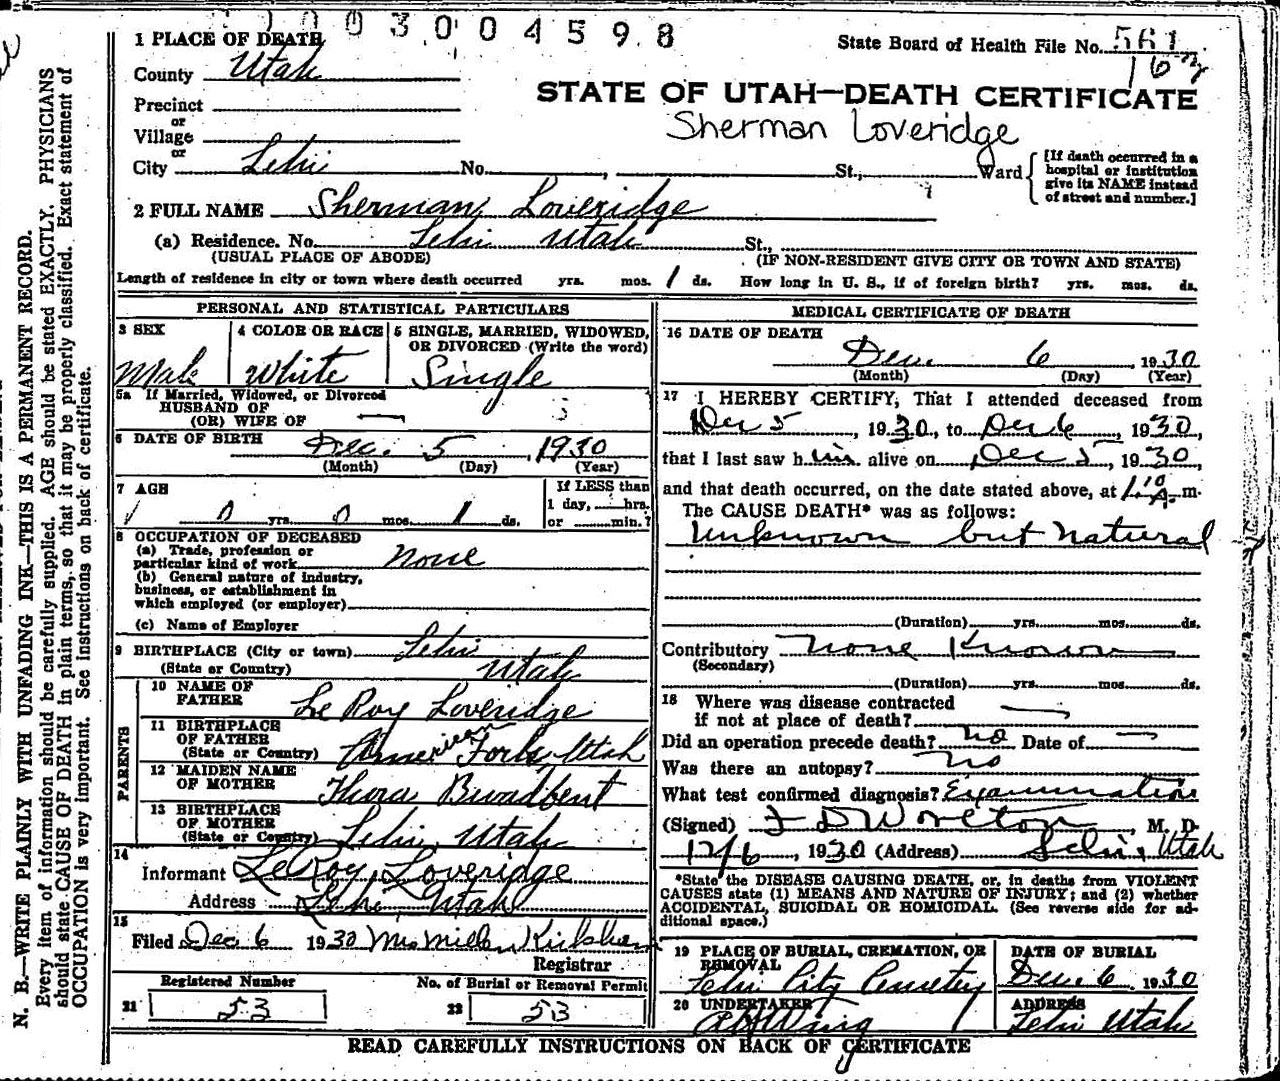 1 0 0 3 0 0 4 5 9 8
1 PLACE OF DEATH
State Board of Health File No. 561
16
County Utah
STATE OF UTAH—DEATH CERTIFICATE
Precinct
or
Sherman Loveridge
Village
or
City Lehi No. , St., Ward
[If death occurred in a hospital or institution give its NAME instead of street and number.]
2 FULL NAME Sherman Loveridge
(a) Residence. No. Lehi Utah St.,
(USUAL PLACE OF ABODE) (IF NON-RESIDENT GIVE CITY OR TOWN AND STATE)
Length of residence in city or town where death occurred yrs. mos. 1 ds. How long in U. S., if of foreign birth? yrs. mos. ds.
PERSONAL AND STATISTICAL PARTICULARS
3 SEX
Male
4 COLOR OR RACE
White
5 SINGLE, MARRIED, WIDOWED, OR DIVORCED (Write the word)
Single
5a If Married, Widowed, or Divorced
HUSBAND OF
(OR) WIFE OF —
6 DATE OF BIRTH Dec. 5, 1930
(Month) (Day) (Year)
7 AGE
0 yrs. 0 mos. 1 ds.
If LESS than
1 day, hrs.
or min.?
8 OCCUPATION OF DECEASED
(a) Trade, profession or
particular kind of work none
(b) General nature of industry,
business, or establishment in
which employed (or employer)
(c) Name of Employer
9 BIRTHPLACE (City or town) Lehi
(State or Country) Utah
PARENTS
10 NAME OF FATHER Le Roy Loveridge
11 BIRTHPLACE OF FATHER (State or Country) American Fork, Utah
12 MAIDEN NAME OF MOTHER Thora Broadbent
13 BIRTHPLACE OF MOTHER (State or Country) Lehi, Utah
14
Informant LeRoy Loveridge
Address Lehi, Utah
15
Filed Dec 6 1930 Mrs
Registrar
Registered Number No. of Burial or Removal Permit
21 53 22 53
MEDICAL CERTIFICATE OF DEATH
16 DATE OF DEATH
Dec. 6, 1930
(Month) (Day) (Year)
17 I HEREBY CERTIFY, That I attended deceased from
Dec 5, 1930, to Dec 6, 1930,
that I last saw him alive on Dec 5, 1930,
and that death occurred, on the date stated above, at 1:10 A. m.
The CAUSE DEATH* was as follows:
Unknown but Natural
(Duration) yrs. mos. ds.
Contributory None Known
(Secondary)
(Duration) yrs. mos. ds.
18 Where was disease contracted
if not at place of death? —
Did an operation precede death? no Date of —
Was there an autopsy? no
What test confirmed diagnosis? Examination
(Signed) , M. D.
12/6, 1930 (Address) Lehi, Utah
*State the DISEASE CAUSING DEATH, or, in deaths from VIOLENT
CAUSES state (1) MEANS AND NATURE OF INJURY; and (2) whether
ACCIDENTAL, SUICIDAL OR HOMICIDAL. (See reverse side for ad-
ditional space.)
19 PLACE OF BURIAL, CREMATION, OR REMOVAL
Lehi City Cemetery
DATE OF BURIAL
Dec. 6, 1930
20 UNDERTAKER
ADDRESS
Lehi Utah
READ CAREFULLY INSTRUCTIONS ON BACK OF CERTIFICATE
N. B.—WRITE PLAINLY WITH UNFADING INK—THIS IS A PERMANENT RECORD.
Every item of information should be carefully supplied. AGE should be stated EXACTLY. PHYSICIANS
should state CAUSE OF DEATH in plain terms, so that it may be properly classified. Exact statement of
OCCUPATION is very important. See instructions on back of certificate.